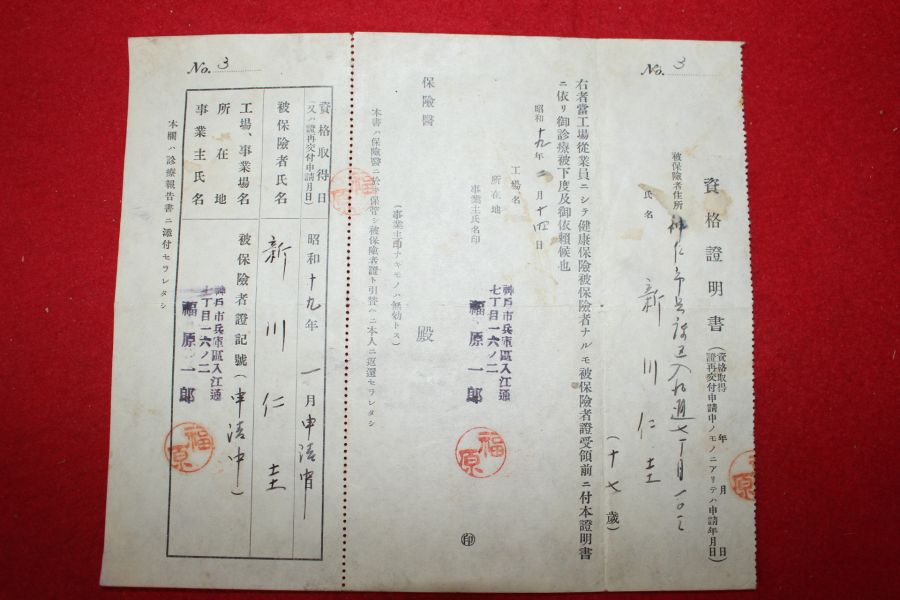 No. 3
資格證明書
(資格取得 年 月 日
證再交付申請中ノモノニアリテハ申請年月日)
被保險者住所 神戸市兵庫區入江通七丁目一〇ノ二
氏名 新川仁圭 (十七歳)
右者當工場從業員ニシテ健康保險被保險者ナルモ被保險者證受領前ニ付本證明書
ニ依リ御診療被下度及御依賴候也
昭和十九年二月十四日
工場名
所在地
事業主氏名印
神戸市兵庫區入江通
七丁目一六ノ二
福原一郎
福原
保險醫 殿
印
(事業主印ナキモノハ無効トス)
本書ハ保險醫ニ於テ保管シ被保險者證ト引替ヘニ本人ニ返還セラレタシ
No. 3
資格取得日
(又ハ證再交付申請月日)
昭和十九年一月申請中
被保險者氏名
新川仁圭
工場、事業場名
被保險者證記號(申請中)
所在地
神戸市兵庫區入江通
七丁目一六ノ二
事業主氏名
福原一郎
福原
本欄ハ診療報告書ニ添付セラレタシ